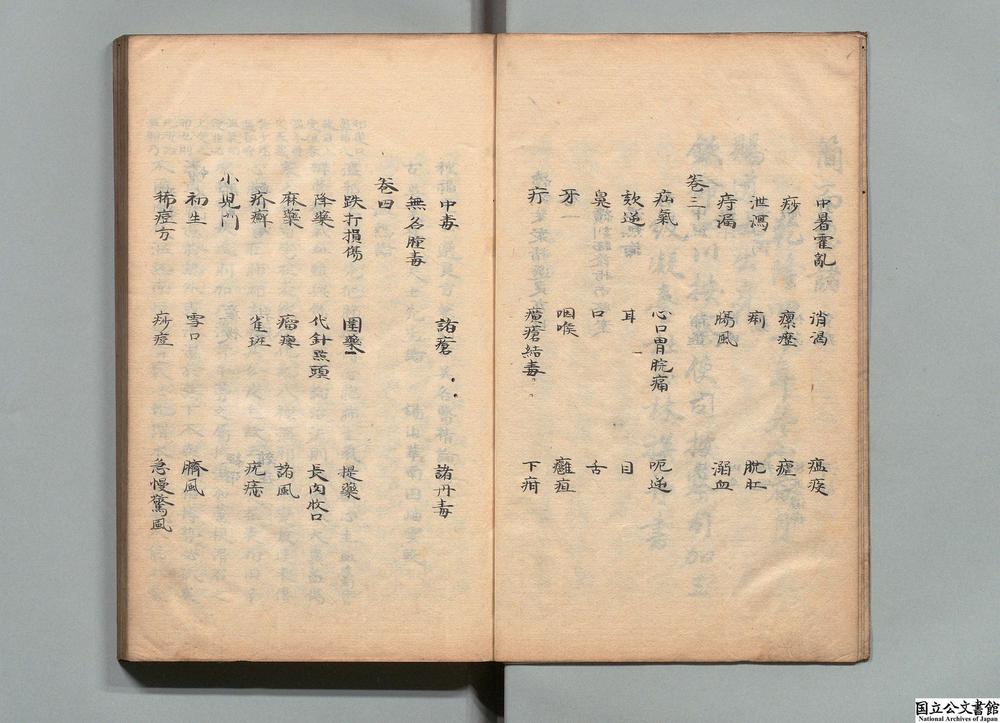 中暑霍亂 消渴 瘟疫
痧 瘰癧 瘧
泄瀉 痢 脫肛
痔漏 腸風 溺血
卷三
疝氣 心口胃脘痛 呃逆
欬逆 耳 目
鼻 口 舌
牙 咽喉 癰疽
疔 癀瘡結毒 下疳
中毒 諸瘡 諸丹毒
無名腫毒
卷四
跌打損傷 圍藥 提藥
降藥 代針點頭 長肉收口
麻藥 瘤瘿 諸風
疥癬 雀斑 疣痣
小兒門
初生 雪口 臍風
稀痘方 痧痘 急慢驚風
国立公文書館
National Archives of Japan